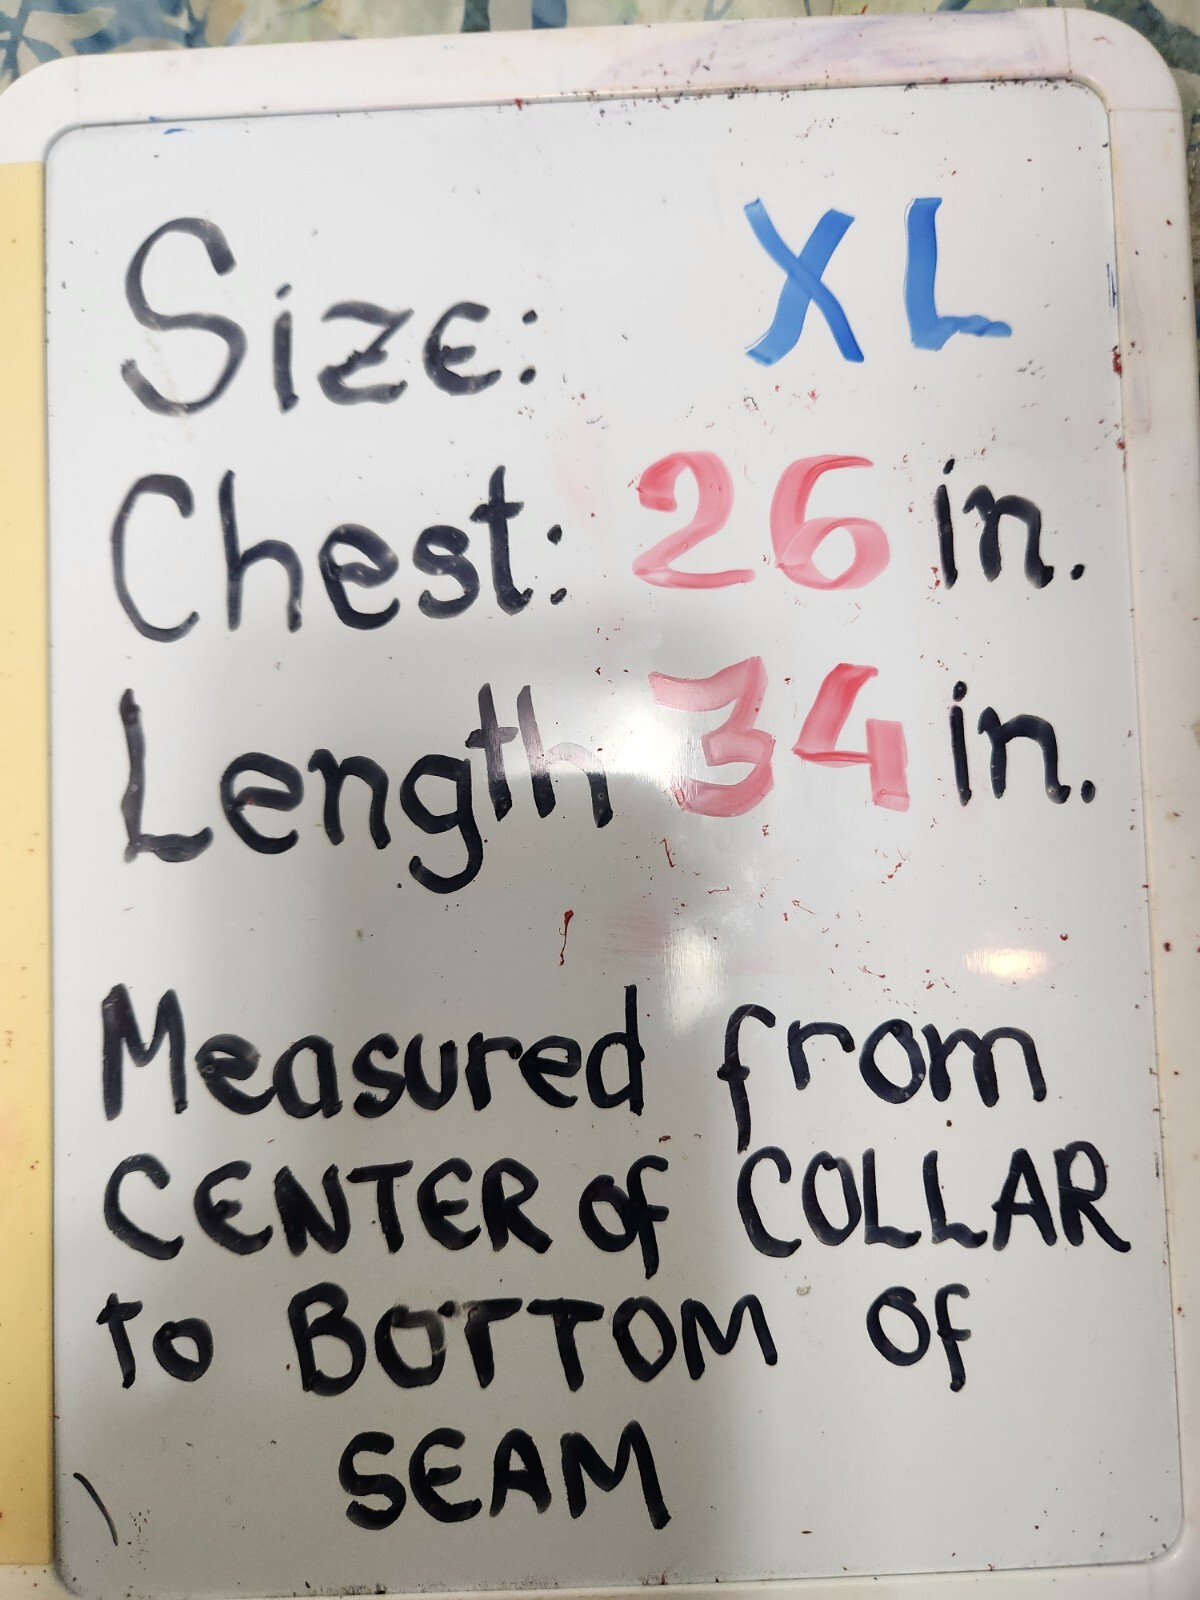 Size: XL
Chest: 26 in.
Length 34 in.
Measured from
CENTER of COLLAR
to BOTTOM of
SEAM